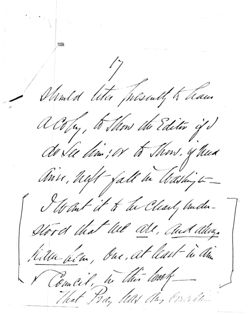 17
should like presently to have
a copy, to show the Editor if I
do see him; or to show, if need
arise, next fall in Washington—
I want it to be clearly under-
stood that we all, and
him, one, at least in
Council, in this
that Pray has any